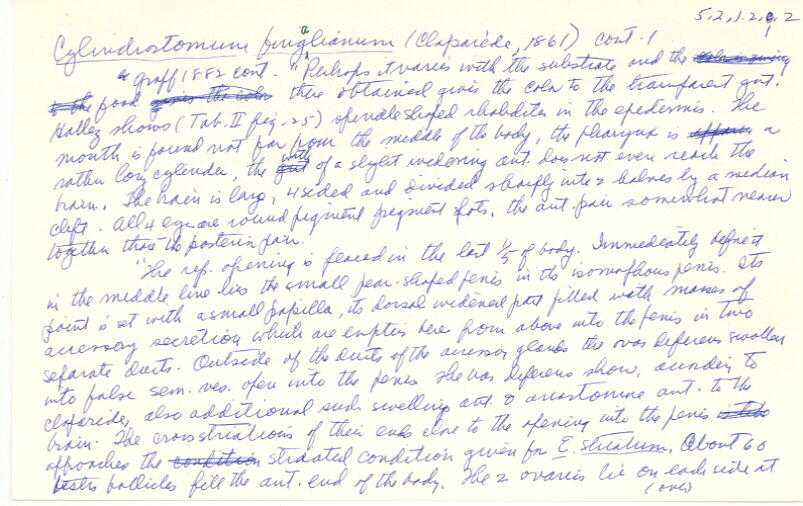 5.2.1.2.9.2
Cylindrostomum finglianum (Claparède, 1861) cont. 1
Graff 1882 cont. "Perhaps it varies with the substrate and the
food thus obtained gives the color to the transparent gut.
Hallez shows (Tab. II fig. 25) spindle shaped rhabdites in the epidermis. The
mouth is found not far from the middle of the body, the pharynx is a
rather long cylinder, the with of a slight widening ant. does not even reach the
brain. The brain is large, 4 sided and divided sharply into 2 halves by a median
cleft. All 4 eyes are round pigment pigment spots, the ant. pair somewhat nearer
together than the posterior pair.
"The rep. opening is placed in the last 1/5 of body. Immediately before it
in the middle line lies the small pear-shaped penis in the isomorphous penis. Its
point is set with a small papilla, its dorsal widened part filled with masses of
accessory secretion which are emptied here from above into the penis in two
separate ducts. Outside of the ducts of the accessory glands the vas deferens swollen
into false sem. ves. open into the penis. The vas deferens show, according to
Claparède, also additional such swelling ant. & anastomine ant. to the
brain. The cross striations of their ends close to the opening into the penis
approaches the striated condition given for E. striatum. About 60
testes follicles fill the ant. end of the body. The 2 ovaries lie on each side at
(over)